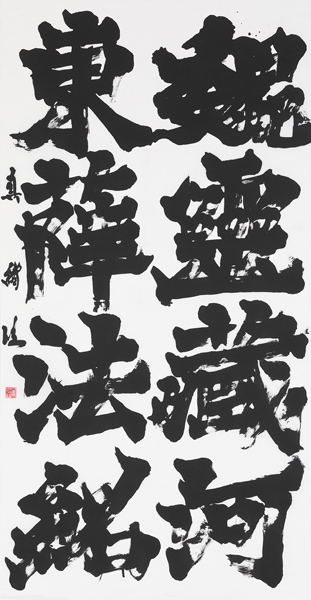 魏靈藏河
東薛法紹